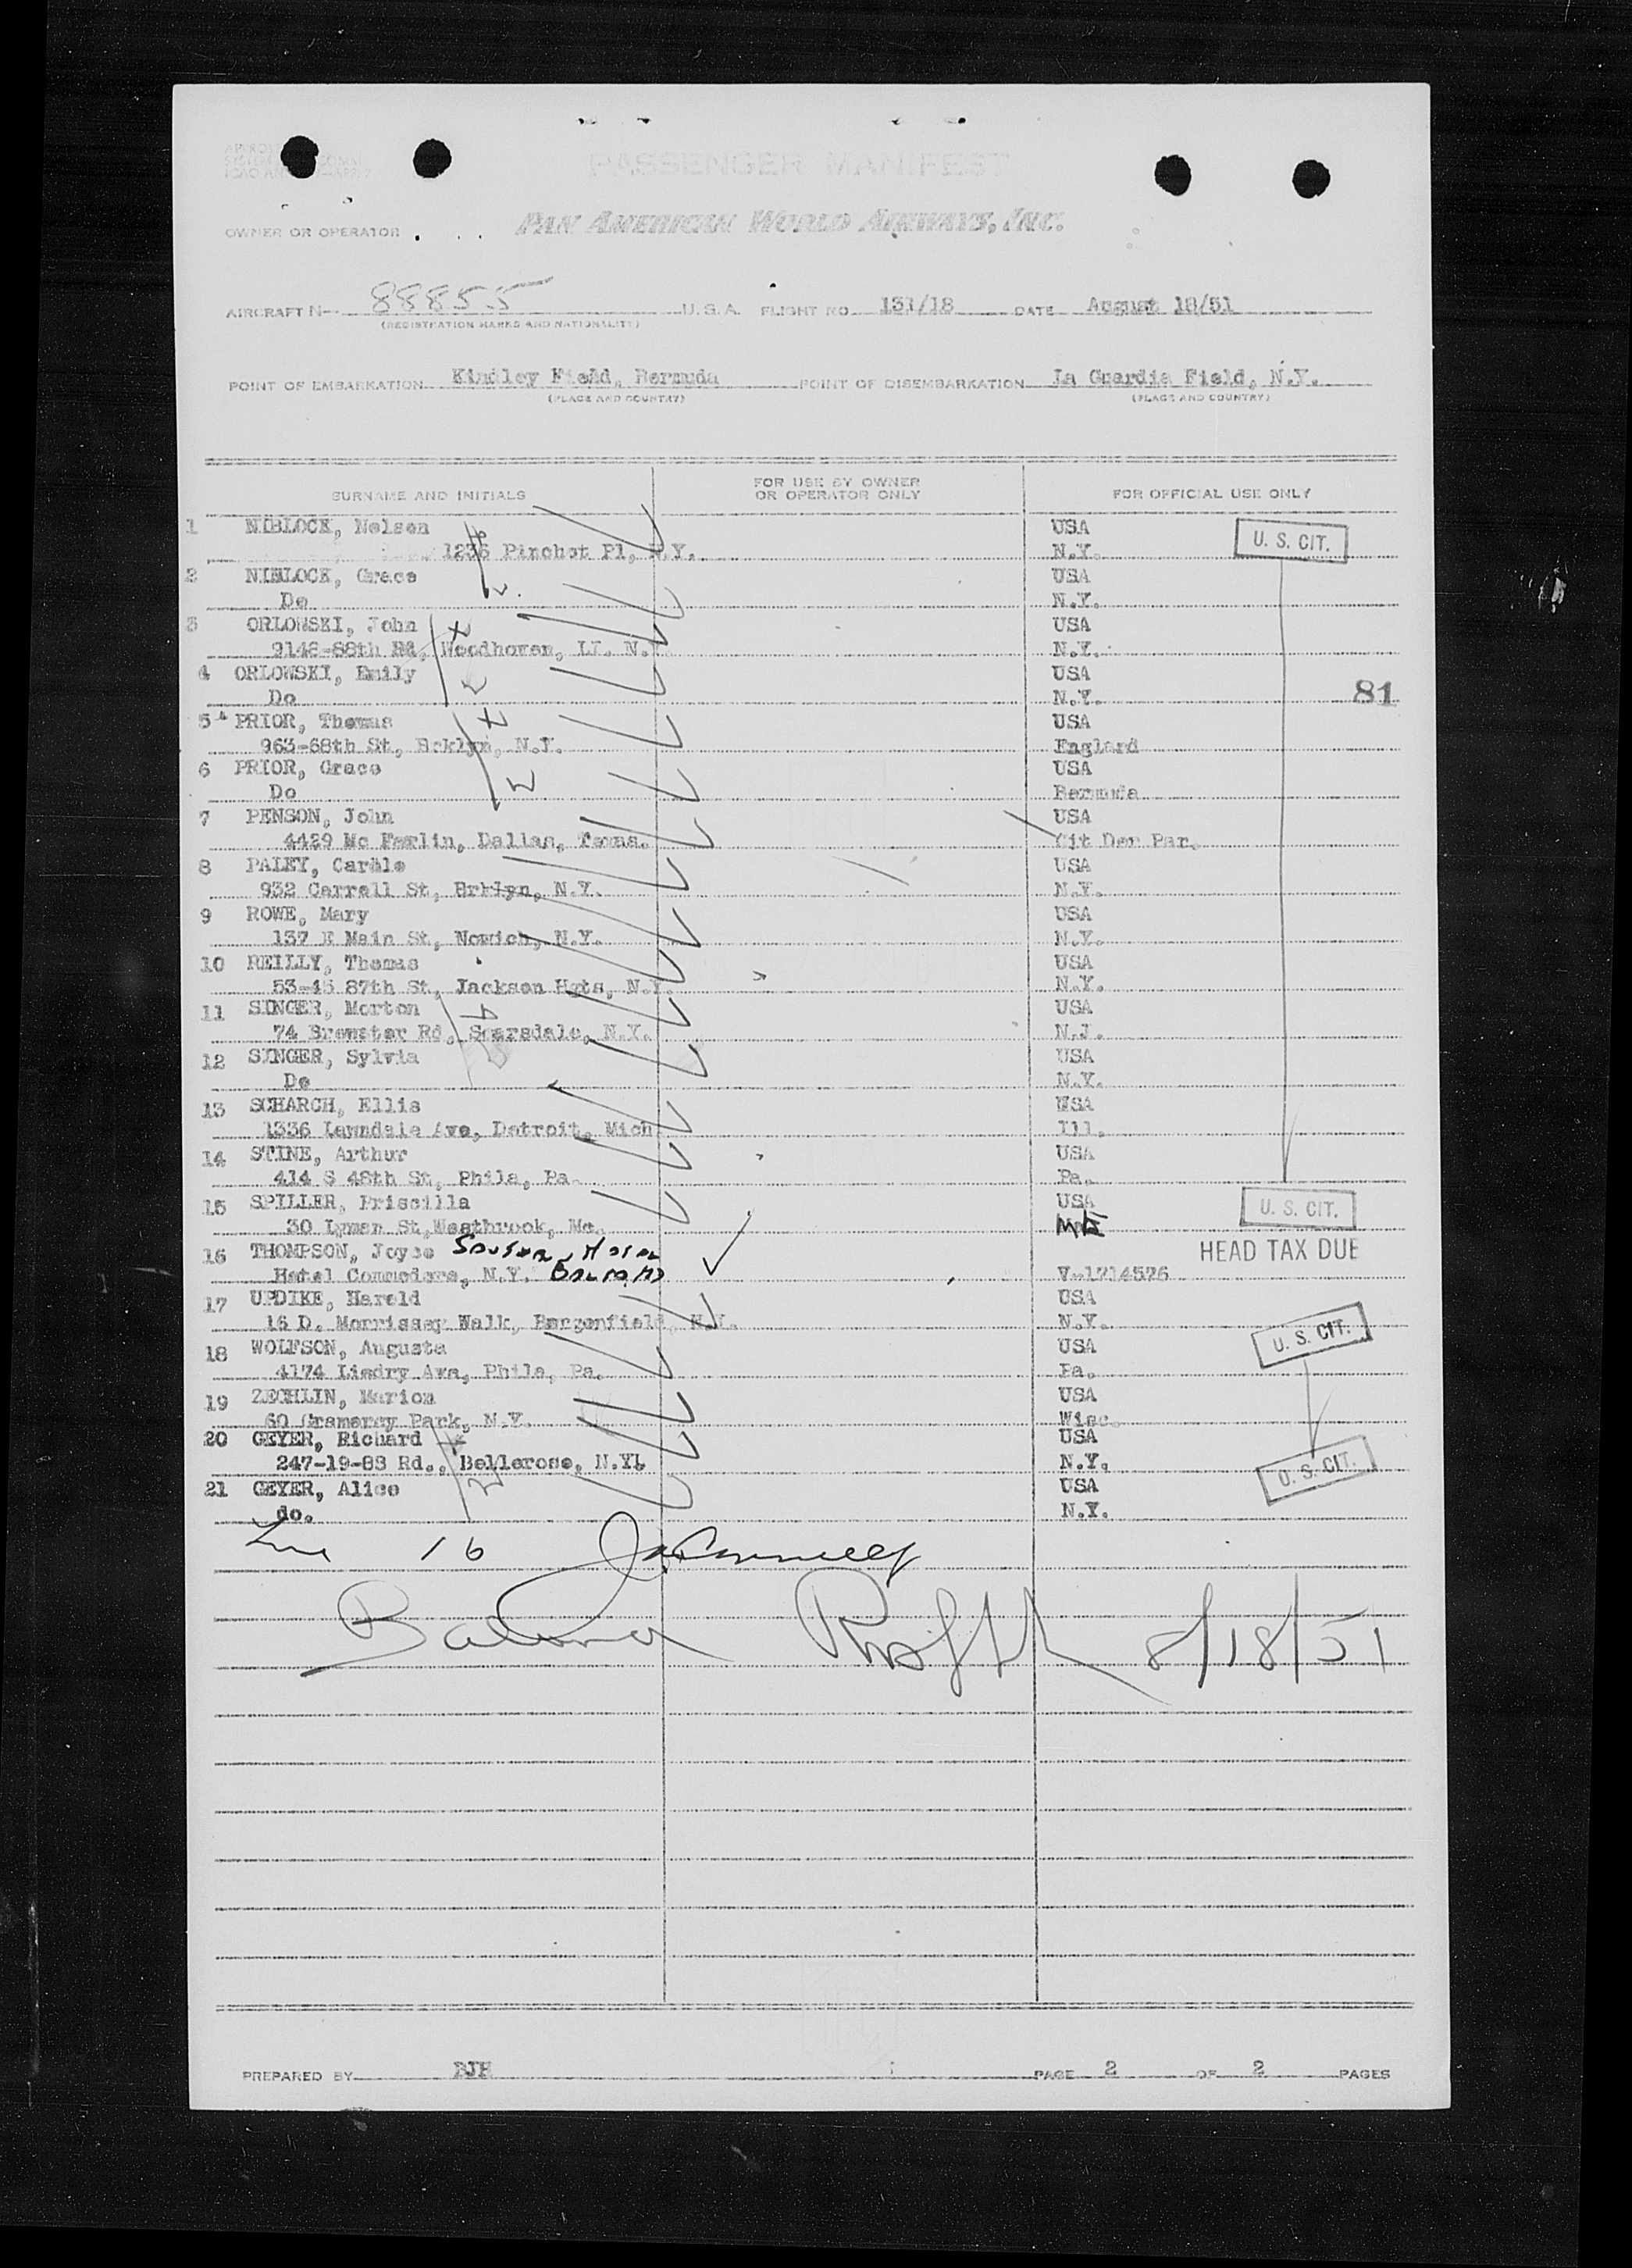 PASSENGER MANIFEST
OWNER OR OPERATOR PAN AMERICAN WORLD AIRWAYS, INC.
AIRCRAFT N- 88855 U.S.A. FLIGHT NO 131/18 DATE August 18/51
(REGISTRATION MARKS AND NATIONALITY)
POINT OF EMBARKATION Kindley Field, Bermuda POINT OF DISEMBARKATION La Guardia Field, N.Y.
(PLACE AND COUNTRY) (PLACE AND COUNTRY)
SURNAME AND INITIALS FOR USE BY OWNER OR OPERATOR ONLY FOR OFFICIAL USE ONLY
1 NIBLOCK, Nelson USA U. S. CIT.
1236 Pinchot Pl, N.Y. N.Y.
2 NIBLOCK, Grace USA
Do N.Y.
3 ORLOWSKI, John USA
9148-88th Rd, Woodhoven, LI. N.Y. N.Y.
4 ORLOWSKI, Emily USA
Do N.Y. 81
5 PRIOR, Thomas USA
963-68th St, Bcklyn, N.Y. England
6 PRIOR, Grace USA
Do Bermuda
7 PENSON, John USA
4429 Mc Farlin, Dallas, Cit Der Par.
8 PALEY, Carole USA
932 Carrall St, Brklyn, N.Y. N.Y.
9 ROWE, Mary USA
137 E Main St, Nowich, N.Y. N.Y.
10 REILLY, Thomas USA
53-45 87th St, Jackson Hgts, N.Y. N.Y.
11 SINGER, Morton USA
74 Brewster Rd, Scarsdale, N.Y. N.J.
12 SINGER, Sylvia USA
Do N.Y.
13 SCHARCH, Ellis USA
1336 Lawndale Ave, Detroit, Mich Ill.
14 STINE, Arthur USA
414 S 48th St, Phila, Pa. Pa.
15 SPILLER, Priscilla USA U. S. CIT.
30 Lyman St, Westbrook, Me. ME
16 THOMPSON, Joyce HEAD TAX DUE
Hotel Commodore, N.Y. V-1714576
17 UPDIKE, Harold USA
16 D. Morrissey Walk, Bergenfield, N.J. N.Y. U. S. CIT.
18 WOLFSON, Augusta USA
4174 Ave, Phila, Pa. Pa.
19 ZECHLIN, Marion USA
60 Gramercy Park, N.Y. Wisc.
20 GEYER, Richard USA
247-19-88 Rd., Bellerose, N.Y. N.Y. U. S. CIT.
21 GEYER, Alice USA
do. N.Y.
Line 16
8/18/51
PREPARED BY BJH PAGE 2 OF 2 PAGES